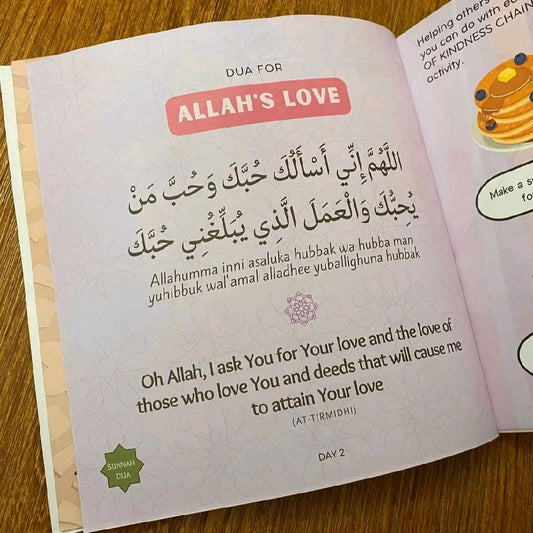 DUA FOR
ALLAH'S LOVE
اللَّهُمَّ إِنِّي أَسْأَلُكَ حُبَّكَ وَحُبَّ مَنْ
يُحِبُّكَ وَالْعَمَلَ الَّذِي يُبَلِّغُنِي حُبَّكَ
Allahumma inni asaluka hubbak wa hubba man
yuhibbuk wal'amal alladhee yuballighuna hubbak
Oh Allah, I ask You for Your love and the love of
those who love You and deeds that will cause me
to attain Your love
(AT-TIRMIDHI)
SUNNAH
DUA
DAY 2
Helping others
you can do with
OF KINDNESS CHAIN
activity.
Make a